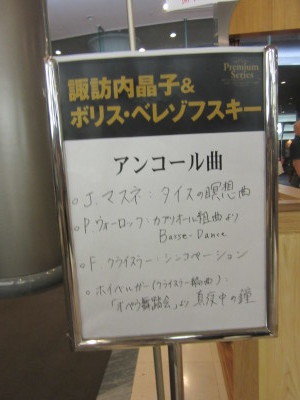 Premium
Series
諏訪内晶子&
ボリス・ベレゾフスキー
アンコール曲
○ J. マスネ : タイスの瞑想曲
○ P. ウォーロック : カプリオール組曲より
Basse-Dance
○ F. クライスラー : シンコペーション
○ ホイベルガー(クライスラー編曲) :
「オペラ舞踏会」より 真夜中の鐘